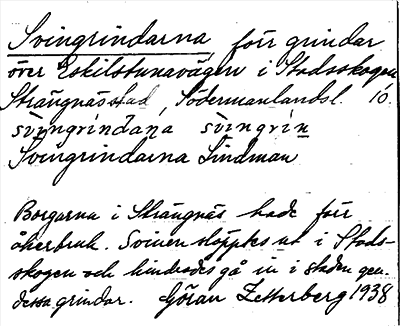 Svingrindarna, förr grindar
över Eskilstunavägen i Stadsskogen
Strängnäs stad, Södermanlandsl. 10.
svingrindana svingrin
Svingrindarna Lindman
Borgarna i Strängnäs hade förr
åkerbruk. Svinen släpptes ut i Stads-
skogen och hindrades gå in i staden gen.
dessa grindar. Göran Zetterberg 1938